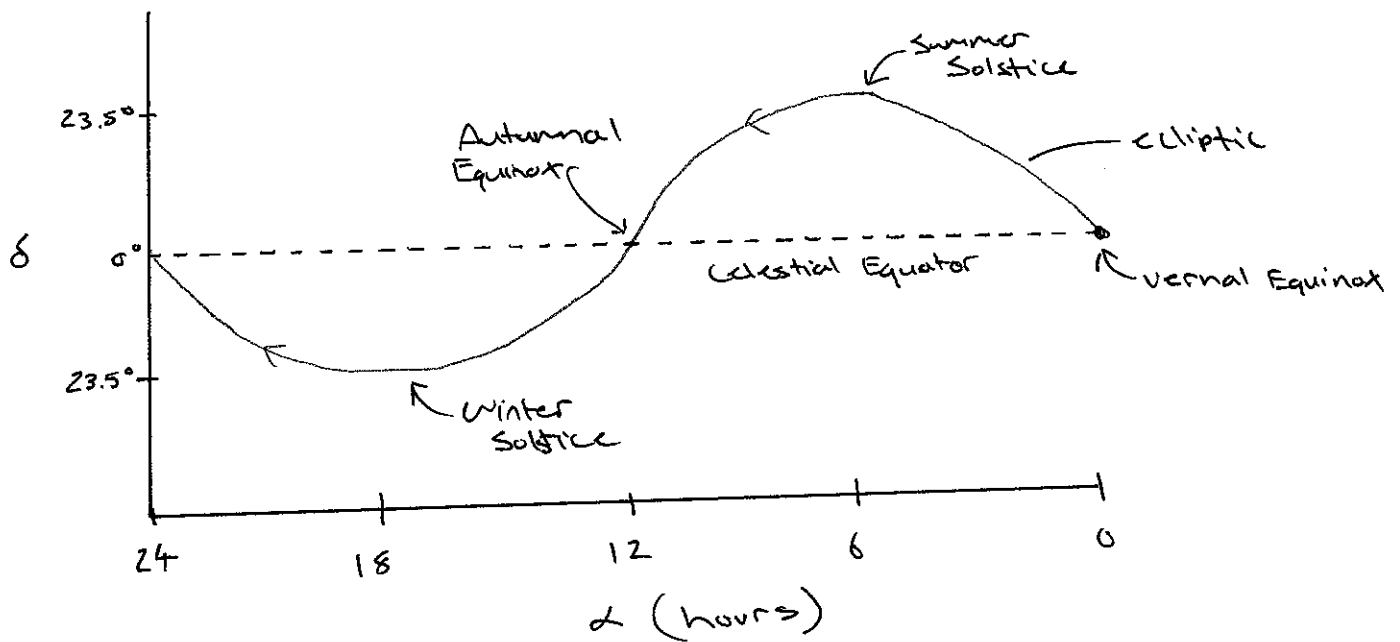 Summer
Solstice
23.5°
Autumnal
Equinox
ecliptic
δ
0°
Celestial Equator
Vernal Equinox
23.5°
Winter
Solstice
24
18
12
6
0
α (hours)